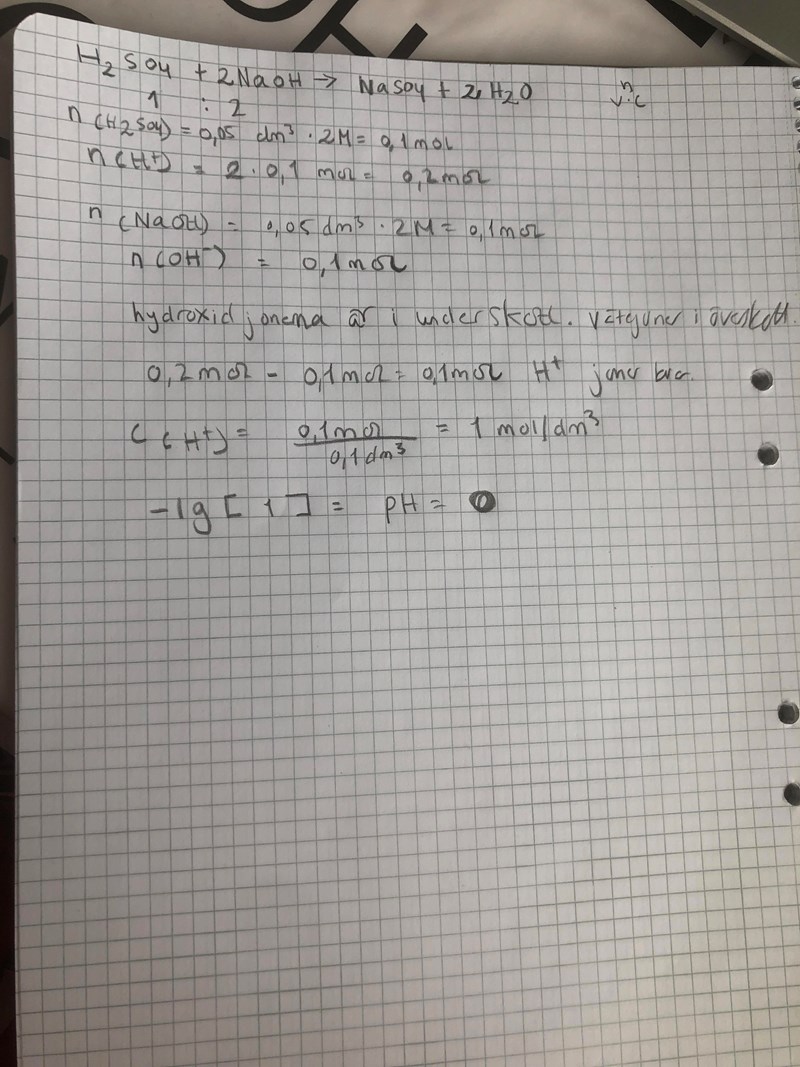 H₂SO4 + 2NaOH → NaSO4 + 2H₂O
n
v·c
1 : 2
n(H2SO4) = 0,05 dm³ · 2M = 0,1mol
n(H⁺) = 2·0,1 mol = 0,2mol
n(NaOH) = 0,05 dm³ · 2M = 0,1mol
n(OH⁻) = 0,1mol
hydroxidjonerna är i underskott. vätejoner i överskott.
0,2mol - 0,1mol = 0,1mol H⁺ joner kvar.
C(H⁺) = 0,1mol / 0,1dm³ = 1 mol/dm³
-lg[1] = pH = 0